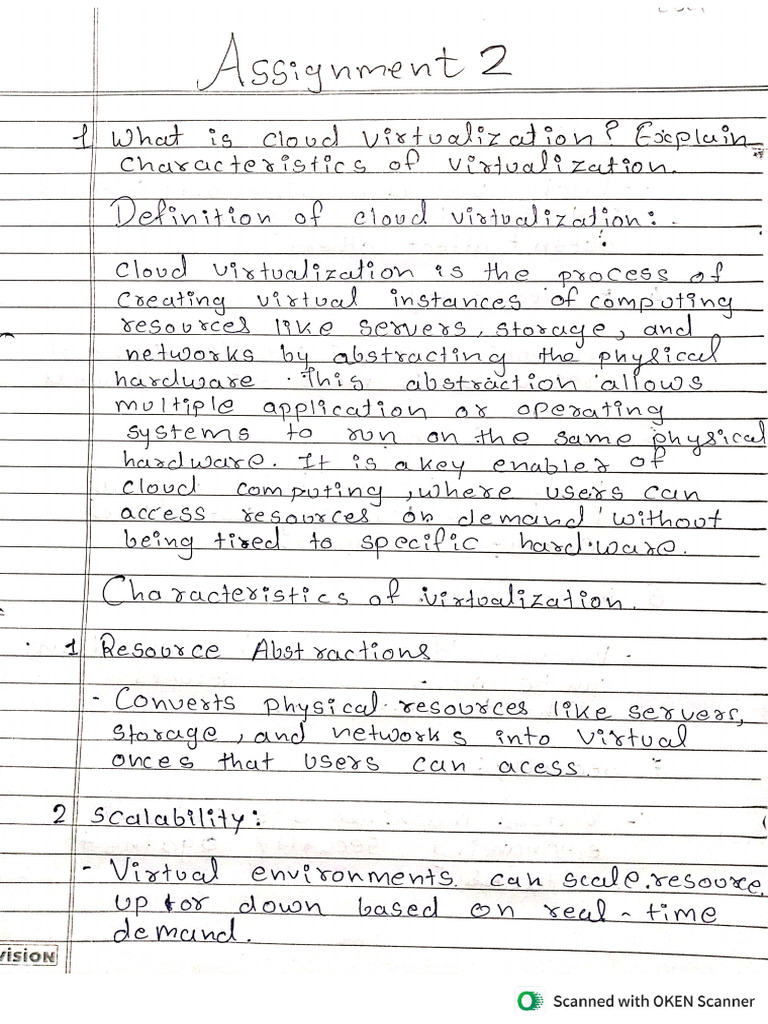 Assignment 2
1 What is cloud virtualization? Explain
characteristics of virtualization.
Definition of cloud virtualization:.
cloud virtualization is the process of
creating virtual instances of computing
resources like servers, storage, and
networks by abstracting the physical
hardware. This abstraction allows
multiple application or operating
systems to run on the same physical
hardware. It is a key enabler of
cloud computing, where users can
access resources on demand without
being tired to specific hardware.
Characteristics of virtualization.
1 Resource Abstractions
- Converts physical resources like servers,
storage, and networks into virtual
onces that users can acess.
2 Scalability:
- Virtual environments can scale resource
up or down based on real-time
demand.
VISION
Scanned with OKEN Scanner